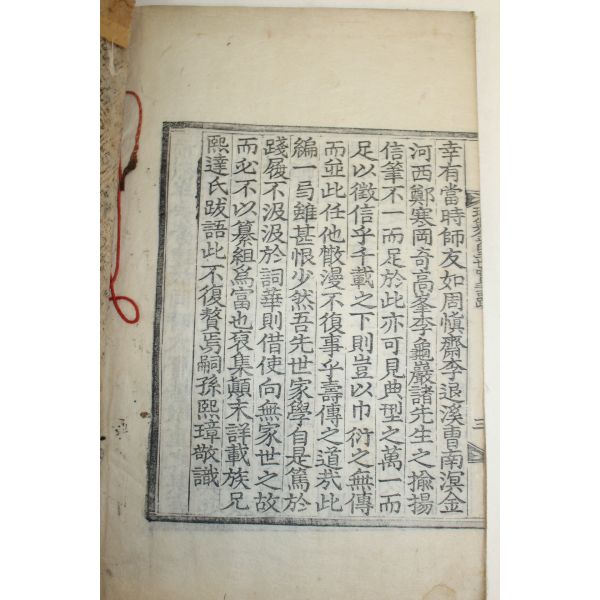 幸有當時師友如周愼齋李退溪曺南溟金
河西鄭寒岡奇高峯李龜巖諸先生之揄揚
信筆不一而足於此亦可見典型之萬一而
足以徵信乎千載之下則豈以巾衍之無傳
而並此任他散漫不復事乎壽傳之道哉此
編一弓雖甚恨少然吾先世家學自是篤於
踐履不汲汲於詞華則借使向無家世之故
而必不以纂組爲富也裒集顚末詳載族兄
熙達氏跋語此不復贅焉嗣孫熙璋敬識
三